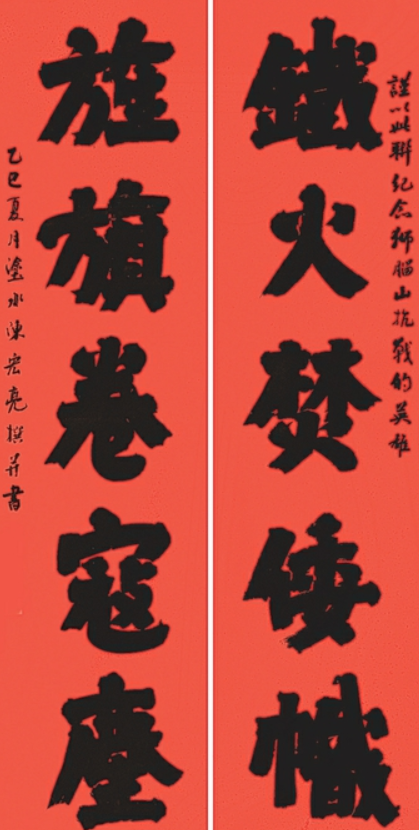 謹以此聯紀念獅腦山抗戰的英雄
鐵火焚倭幟
旌旗卷寇塵
乙巳夏月塗水陳宏亮撰并書